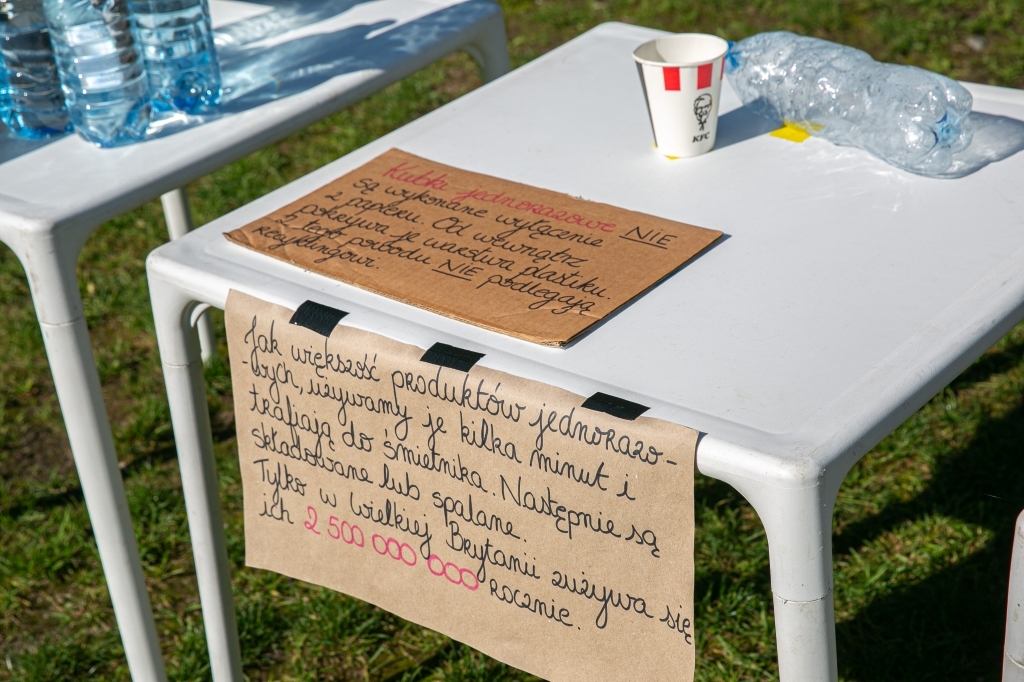 KFC
Kubki jednorazowe NIE
są wykonane wyłącznie
z papieru. Od wewnątrz
pokrywa je warstwa plastiku.
Z tego powodu NIE podlegają
recyklingowi.
Jak większość produktów jednorazo-
wych, używamy je kilka minut i
trafiają do śmietnika. Następnie są
składowane lub spalane.
Tylko w Wielkiej Brytanii zużywa się
ich 2 500 000 000 rocznie.